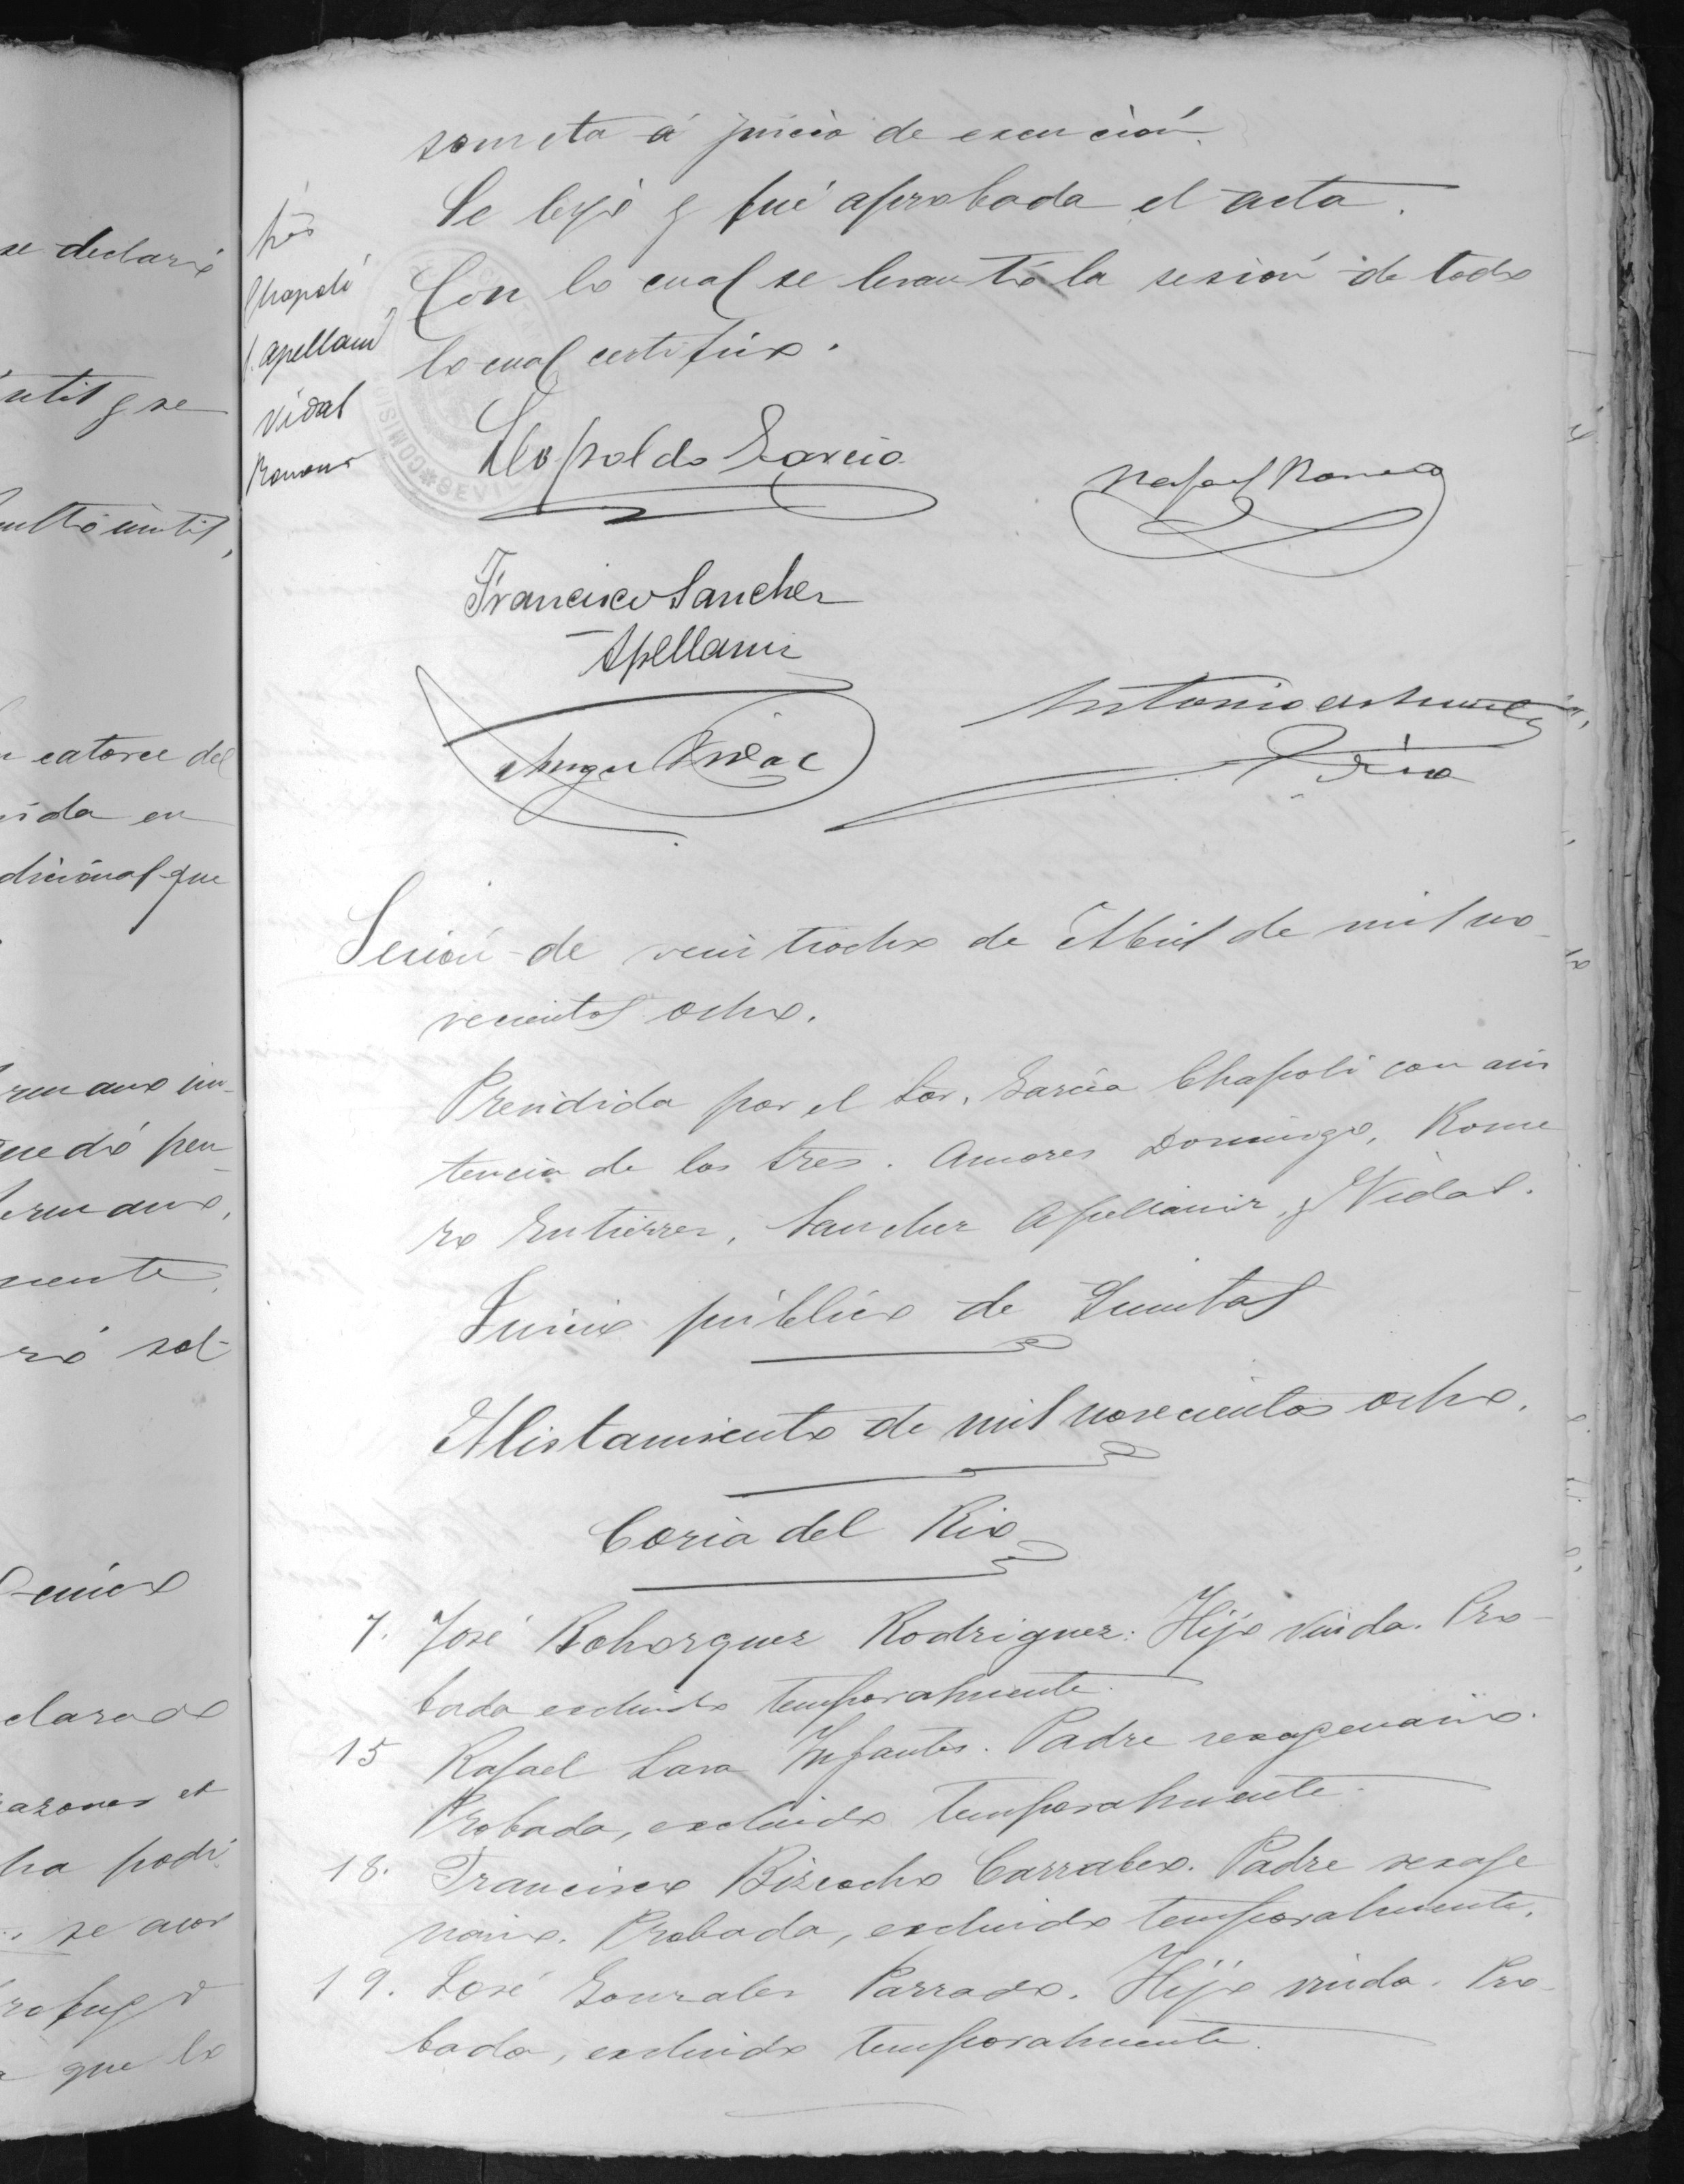 se declaró
inutil y se
inutil,
catorce del
en
dicional que
quedó pen
hermano,
mente
ró sol
clarado
razones et
ha podi
se acor
profugo
que lo
someta á juicio de exención.
Se leyó y fué aprobada el acta.
Con lo cual se levantó la sesión de todo
lo cual certifico.
tres
Chapoli
S. Apellaniz
Vidal
Romero
COMISI * SEVI
Leopoldo Garcia
Rafael Romero
Francisco Sanchez
Apellaniz
Antonio
Vidal
Sesión de veintiocho de Abril de mil no
vecientos ocho.
Presidida por el Sor. Garcia Chapoli con asis
tencia de los sres. Amores Domingo, Rome
ro Gutierrez, Sanchez Apellaniz y Vidal.
Juicio público de Quintas
Alistamiento de mil novecientos ocho.
Coria del Rio
7. José Bohorquez Rodriguez: Hijo viuda. Pro-
bada excluido temporalmente.
15 Rafael Lara Infantes. Padre sexagenario.
Probada, excluido temporalmente.
18. Francisco Bizcocho Carrabeo. Padre sexage
nario. Probada, excluido temporalmente.
19. José Gonzalez Parrado. Hijo viuda. Pro
bada, excluido temporalmente.